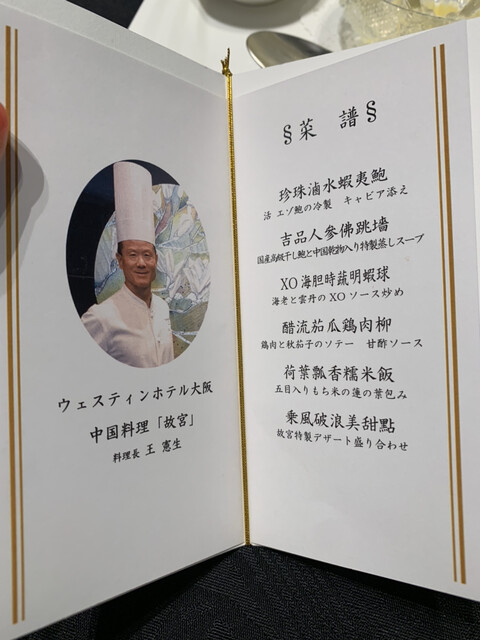 ウェスティンホテル大阪
中国料理「故宮」
料理長 王 憲生
§菜 譜§
珍珠滷水蝦夷鮑
活 エゾ鮑の冷製 キャビア添え
吉品人參佛跳墻
国産高級干し鮑と中国乾物入り特製蒸しスープ
XO海胆時蔬明蝦球
海老と雲丹のXOソース炒め
醋流茄瓜鶏肉柳
鶏肉と秋茄子のソテー 甘酢ソース
荷葉瓢香糯米飯
五目入りもち米の蓮の葉包み
乘風破浪美甜點
故宮特製デザート盛り合わせ